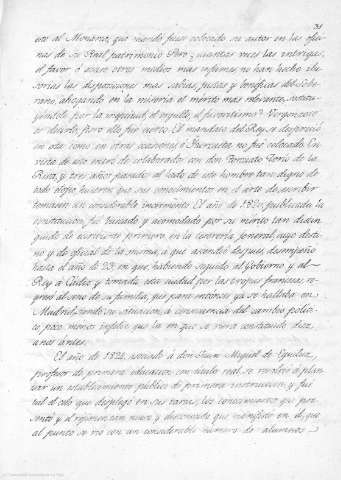 31
uto al Monarca, que siendo fuese colocado su autor en las ofici-
nas de su Real patrimonio. Pero ¡cuantas veces las intrigas,
el favor ó acaso otros medios mas infames no han hecho ilu-
sorias las disposiciones mas sabias, justas y benéficas del Sobe-
rano, ahogando en la miseria el mérito mas relevante, sostitu-
yéndole por la ineptitud, el orgullo, el favoritismo? Vergonzoso
es decirlo, pero ello fué cierto. El mandato del Rey se despreció
en esta como en otras ocasiones é Iturzaeta, no fué colocado. En
vista de esto entró de colaborador con don Torcuato Torio de la
Riva, y tres años pasados al lado de este hombre tan digno de
todo elogio hicieron que sus conocimientos en el arte de escribir
tomasen un considerable incremento. El año de 1820, publicada la
constitucion, fué buscado y acomodado por su mérito tan distin-
guido de escribiente primero en la tesorería general, cuyo desti-
no y de oficial de la misma, á que ascendió despues, desempeñó
hasta el año de 23, en que, habiendo seguido al Gobierno y al
Rey á Cádiz y tomada esta ciudad por las tropas francesas, re-
gresó al seno de su familia, que para entonces ya se hallaba en
Madrid, siendo su situacion, á consecuencia del cambio políti-
co, poco menos infeliz que la en que se viera constituido diez
años antes.
El año de 1824, asociado á don Juan Miguel de Eguilaz,
profesor de primera educacion con título real, se resolvió á plan-
tear un establecimiento público de primera instruccion, y fué
tal el celo que desplegó en sus tareas, los conocimientos que pre-
sentó y el régimen tan nuevo y desconocido que manifestó en él, que
al punto se vió con un considerable número de alumnos